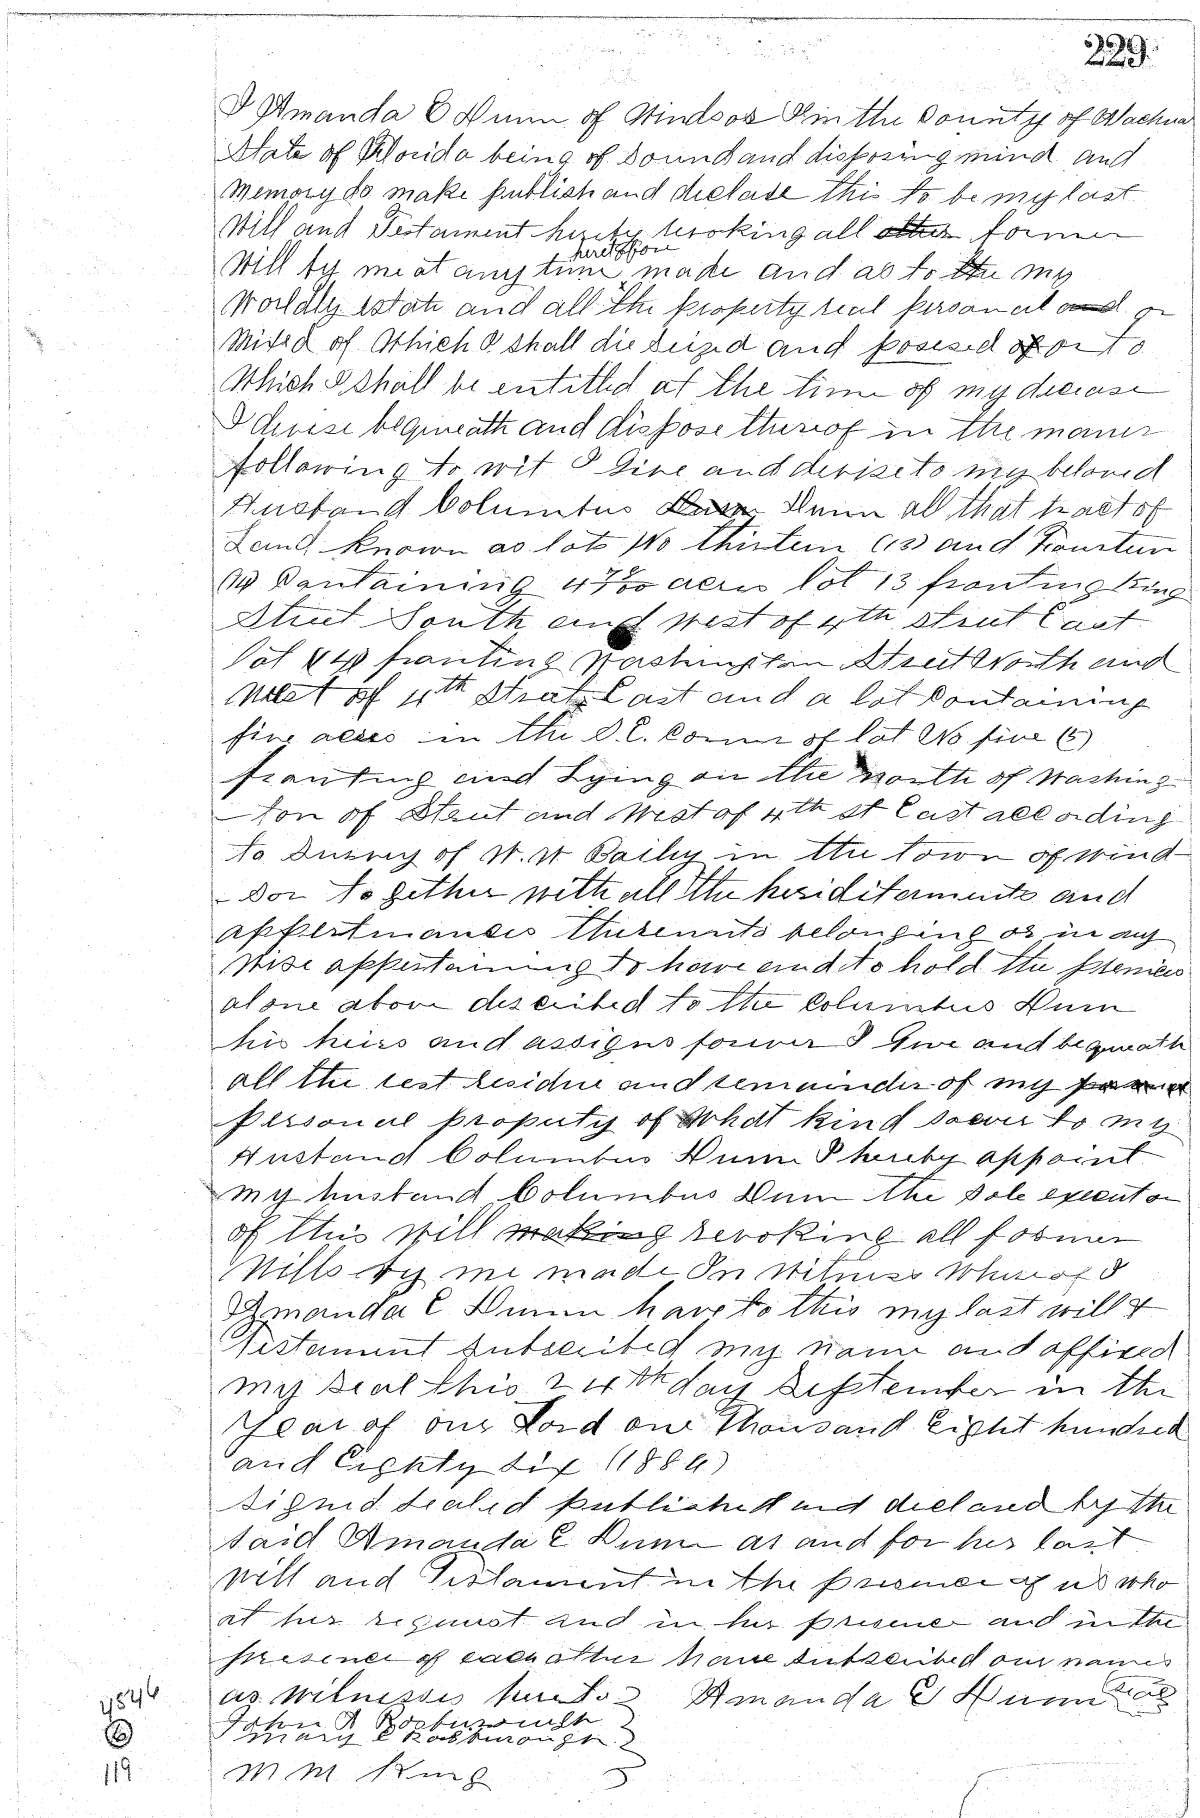 229
I Amanda E Dunn of Windsor in the County of Alachua
State of Florida being of Sound and disposing mind and
Memory do make publish and declare this to be my last
Will and Testament hereby revoking all other former
heretoffore
Will by me at any time made and as to the my
Worldly estate and all the property real personal and or
Mixed of Which I shall die seized and posesed of or to
Which I shall be entitled at the time of my decease
I devise bequeath and dispose thereof in the maner
following to wit I Give and devise to my beloved
Husband Columbus Dunn Dunn all that tract of
Land known as lots No thirteen (13) and Fourteen
14 Containing 4 acres lot 13 fronting King
Street South and West of 4th street East
lot (14) fronting Washington Street North and
West of 4th Street East and a lot Containing
five acres in the S.E. Corner of lot No five (5)
fronting and Lying on the north of Washing-
-ton of Street and West of 4th st East according
to Survey of W. W Baily in the town of Wind-
-sor together with all the heriditerments and
appertinances thereunto belonging or in any
Wise appertaining to have and to hold the premices
alone above described to the Columbus Dunn
his heirs and assigns forever I Give and bequeath
all the rest residue and remainder of my
personal property of What kind soever to my
Husband Columbus Dunn I hereby appoint
my husband Columbus Dunn the sole executor
of this Will making revoking all former
Wills by me made In Witness Whereof I
Amanda E Dunn have to this my last will &
Testament subscribed my name and affixed
my seal this 24th day September in the
Year of our Lord one Thousand Eight hundred
and Eighty Six (1886)
Signed Sealed published and declared by the
said Amanda E Dunn as and for her last
Will and Testament in the presence of us who
at her request and in her presence and in the
presence of each other have subscribed our names
as Witnesses hereto Amanda E Dunn Seal
John A Rosburough
Mary E Rosburough
M M King
4546
6
119